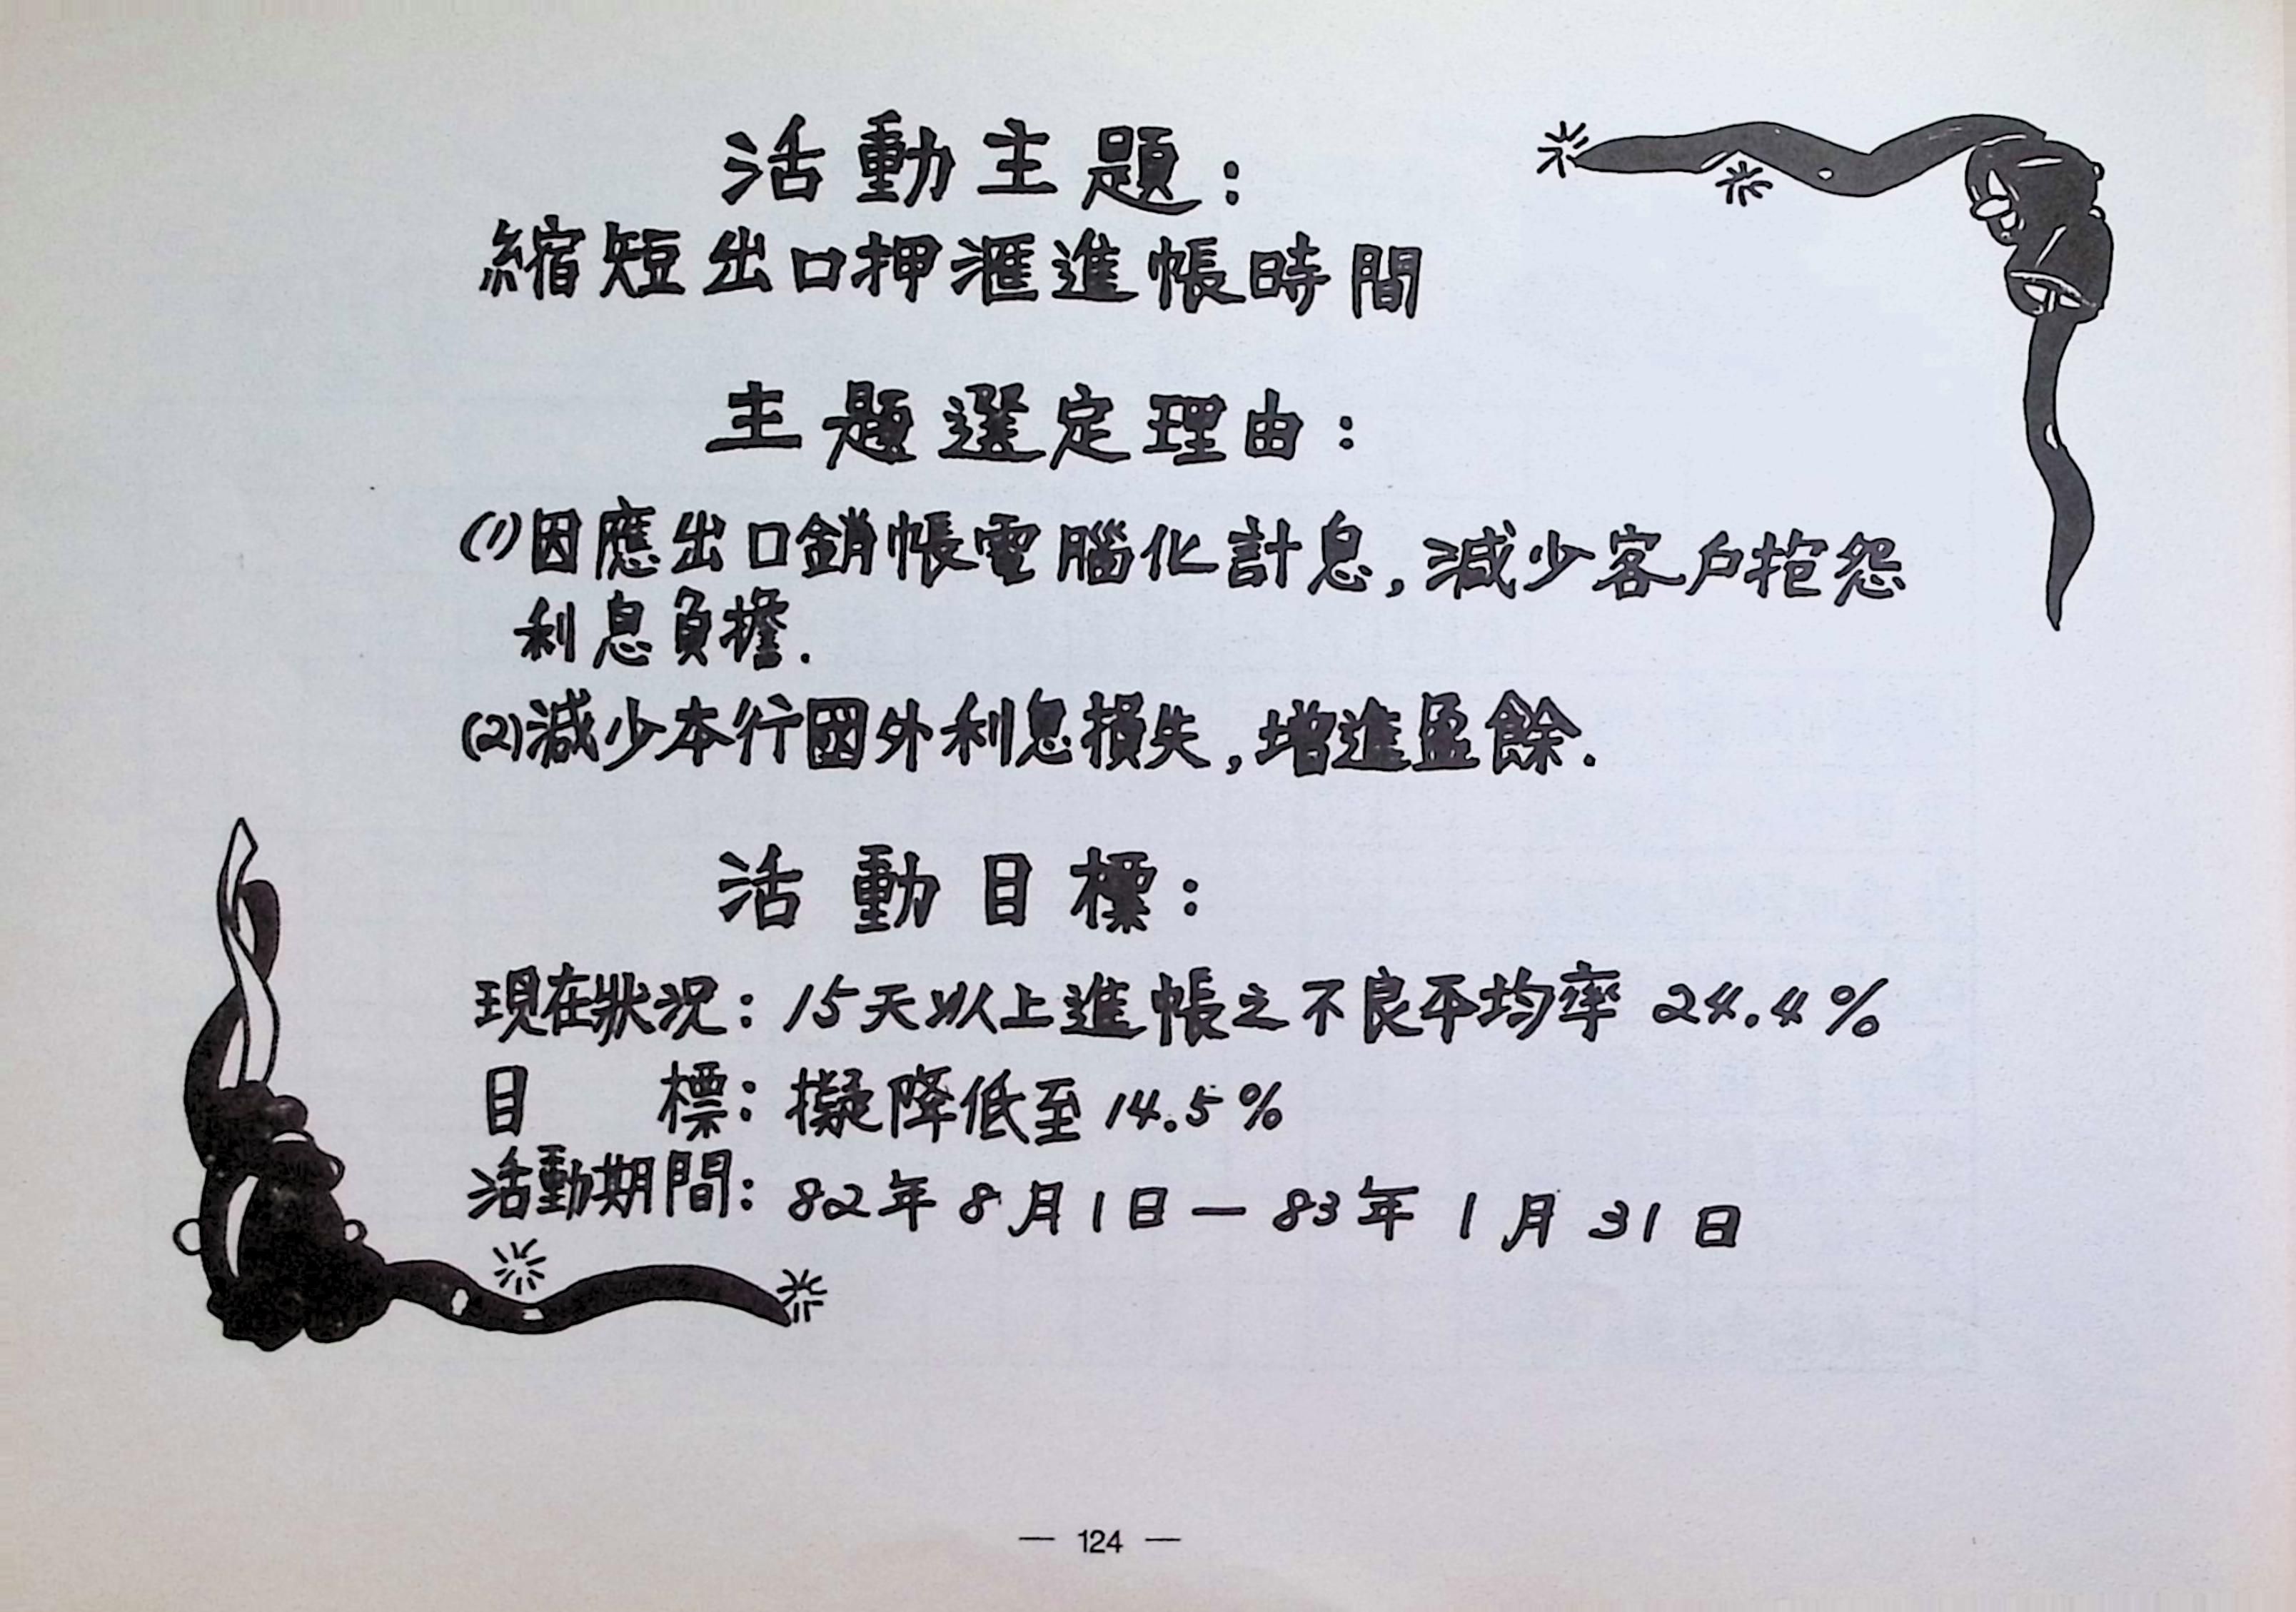 活動主題:
縮短出口押滙進帳時間
主題選定理由:
(1)因應出口銷帳電腦化計息,減少客戶抱怨
利息負擔.
(2)減少本行國外利息損失,增進盈餘.
活動目標:
現在狀況:15天以上進帳之不良平均率 24.4%
目 標:擬降低至14.5%
活動期間:82年8月1日—83年1月31日
— 124 —